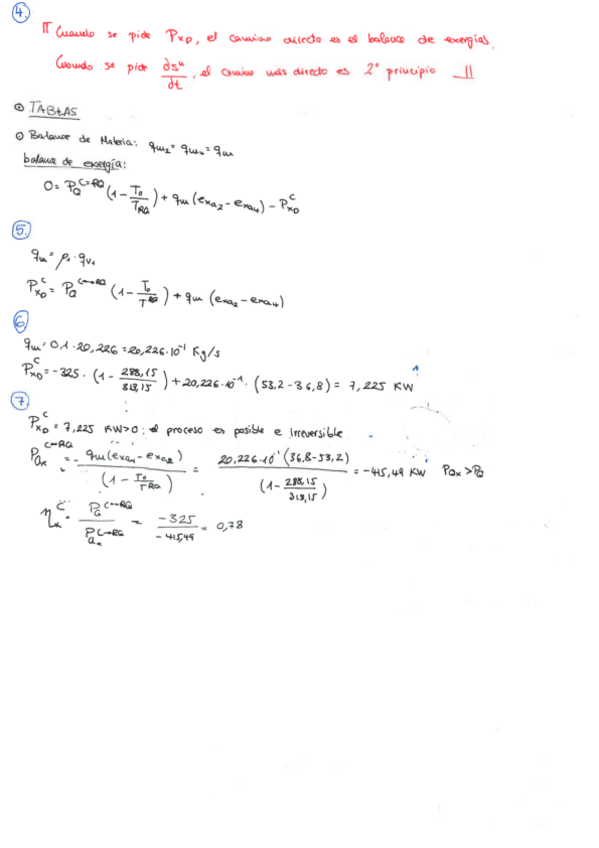 4.
∏ Cuando se pide Pxp, el camino directo es el balance de exergías.
Cuando se pide ∂s^u/dt, el camino más directo es 2º principio _||
⊙ TABLAS
⊙ Balance de Materia: qm2 = qm4 = qm
balance de exergía:
0 = P_Q^{C↔RQ} (1 - T0/T_RQ) + qm (exa2 - exa4) - P_xD^C
5.
qm = ρ1 · qv1
P_xD^C = P_Q^{C↔RQ} (1 - T0/T^RQ) + qm (exa2 - exa4)
6
qm = 0,1 · 20,226 = 20,226·10^-1 Kg/s
P_xD^C = -325 · (1 - 288,15/313,15) + 20,226·10^-1 · (53,2 - 36,8) = 7,225 KW
7
P_xD^C = 7,225 KW>0 : el proceso es posible e irreversible
P_Qx^{C↔RQ} = - qm (exa4 - exa2) / (1 - T0/T_RQ) = 20,226·10^-1 (36,8 - 53,2) / (1 - 288,15/313,15) = -415,49 KW PQx > PQ
η_x^C = P_Q^{C↔RQ} / P_Qx^{C↔RQ} = -325 / -415,49 = 0,78